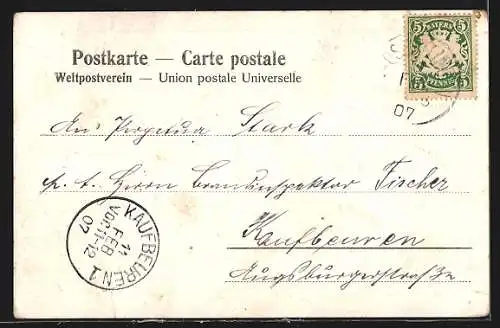 Postkarte — Carte postale
Weltpostverein — Union postale Universelle
5 BAYERN 5
5 PFENNIG 5
07
An Perpetua Stark
p. t. Herrn Brandinspektor Fischer
Kaufbeuren
Augsburgerstraße
KAUFBEUREN 1
11
FEB
VOR. 11-12
07